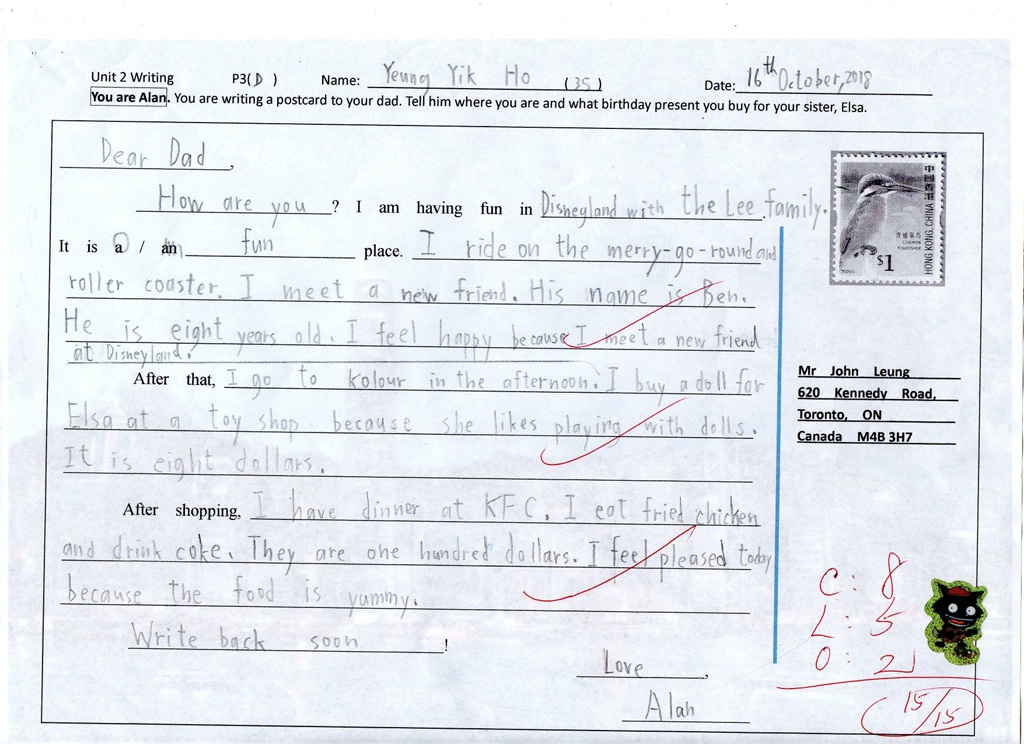 Unit 2 Writing P3(D) Name: Yeung Yik Ho (35) Date: 16th October, 2018
You are Alan. You are writing a postcard to your dad. Tell him where you are and what birthday present you buy for your sister, Elsa.
Dear Dad,
How are you? I am having fun in Disneyland with the Lee family.
It is a / an fun place. I ride on the merry-go-round and
roller coaster. I meet a new friend. His name is Ben.
He is eight years old. I feel happy because I meet a new friend
at Disneyland.
After that, I go to Kolour in the afternoon. I buy a doll for
Elsa at a toy shop because she likes playing with dolls.
It is eight dollars.
After shopping, I have dinner at KFC. I eat fried chicken
and drink coke. They are one hundred dollars. I feel pleased today
because the food is yummy.
Write back soon!
Love,
Alan
中國香港
HONG KONG, CHINA
普通翠鳥
COMMON KINGFISHER
$1
Mr John Leung
620 Kennedy Road,
Toronto, ON
Canada M4B 3H7
C: 8
L: 5
O: 2
15/15